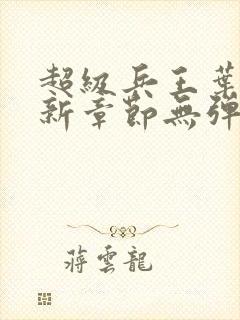 超級兵王葉
新章節無彈
蔣雲龍